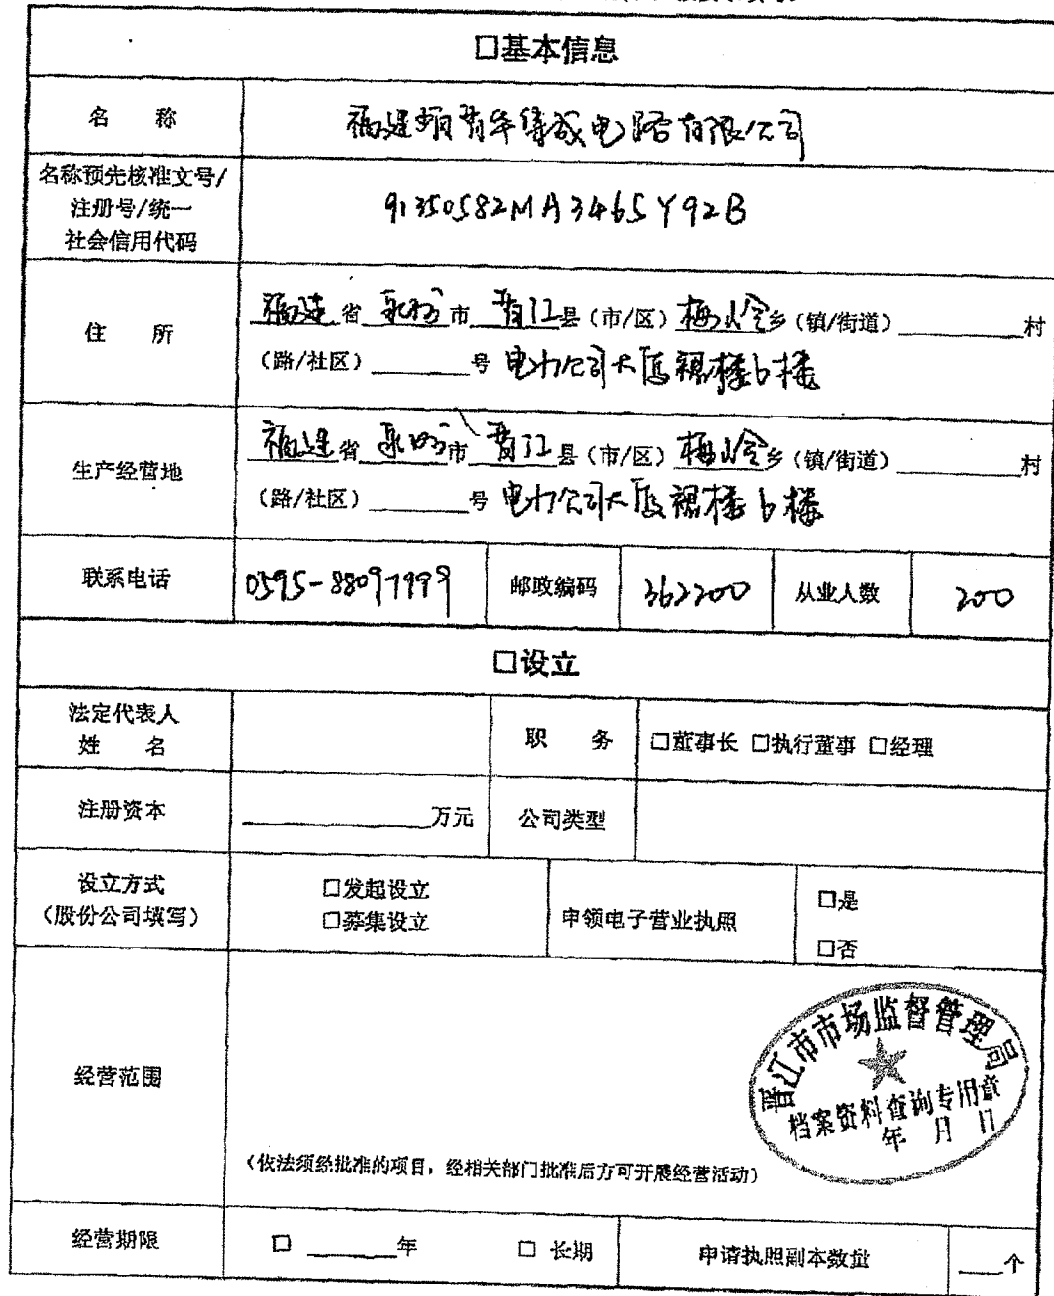 □基本信息
名 称 福建省晋华集成电路有限公司
名称预先核准文号/
注册号/统一
社会信用代码
91350582MA3465Y92B
住 所
福建省 泉州市 晋江县（市/区）梅岭乡（镇/街道）________村
（路/社区）________号 电力公司大厦裙楼6楼
生产经营地
福建省 泉州市 晋江县（市/区）梅岭乡（镇/街道）________村
（路/社区）________号 电力公司大厦裙楼6楼
联系电话 0595-88097999 邮政编码 362200 从业人数 200
□设立
法定代表人
姓 名
职 务 □董事长 □执行董事 □经理
注册资本 ________万元 公司类型
设立方式
（股份公司填写）
□发起设立
□募集设立
申领电子营业执照
□是
□否
经营范围
晋江市市场监督管理局
档案资料查询专用章
年 月 日
（依法须经批准的项目，经相关部门批准后方可开展经营活动）
经营期限 □ ________年 □ 长期 申请执照副本数量 ____个